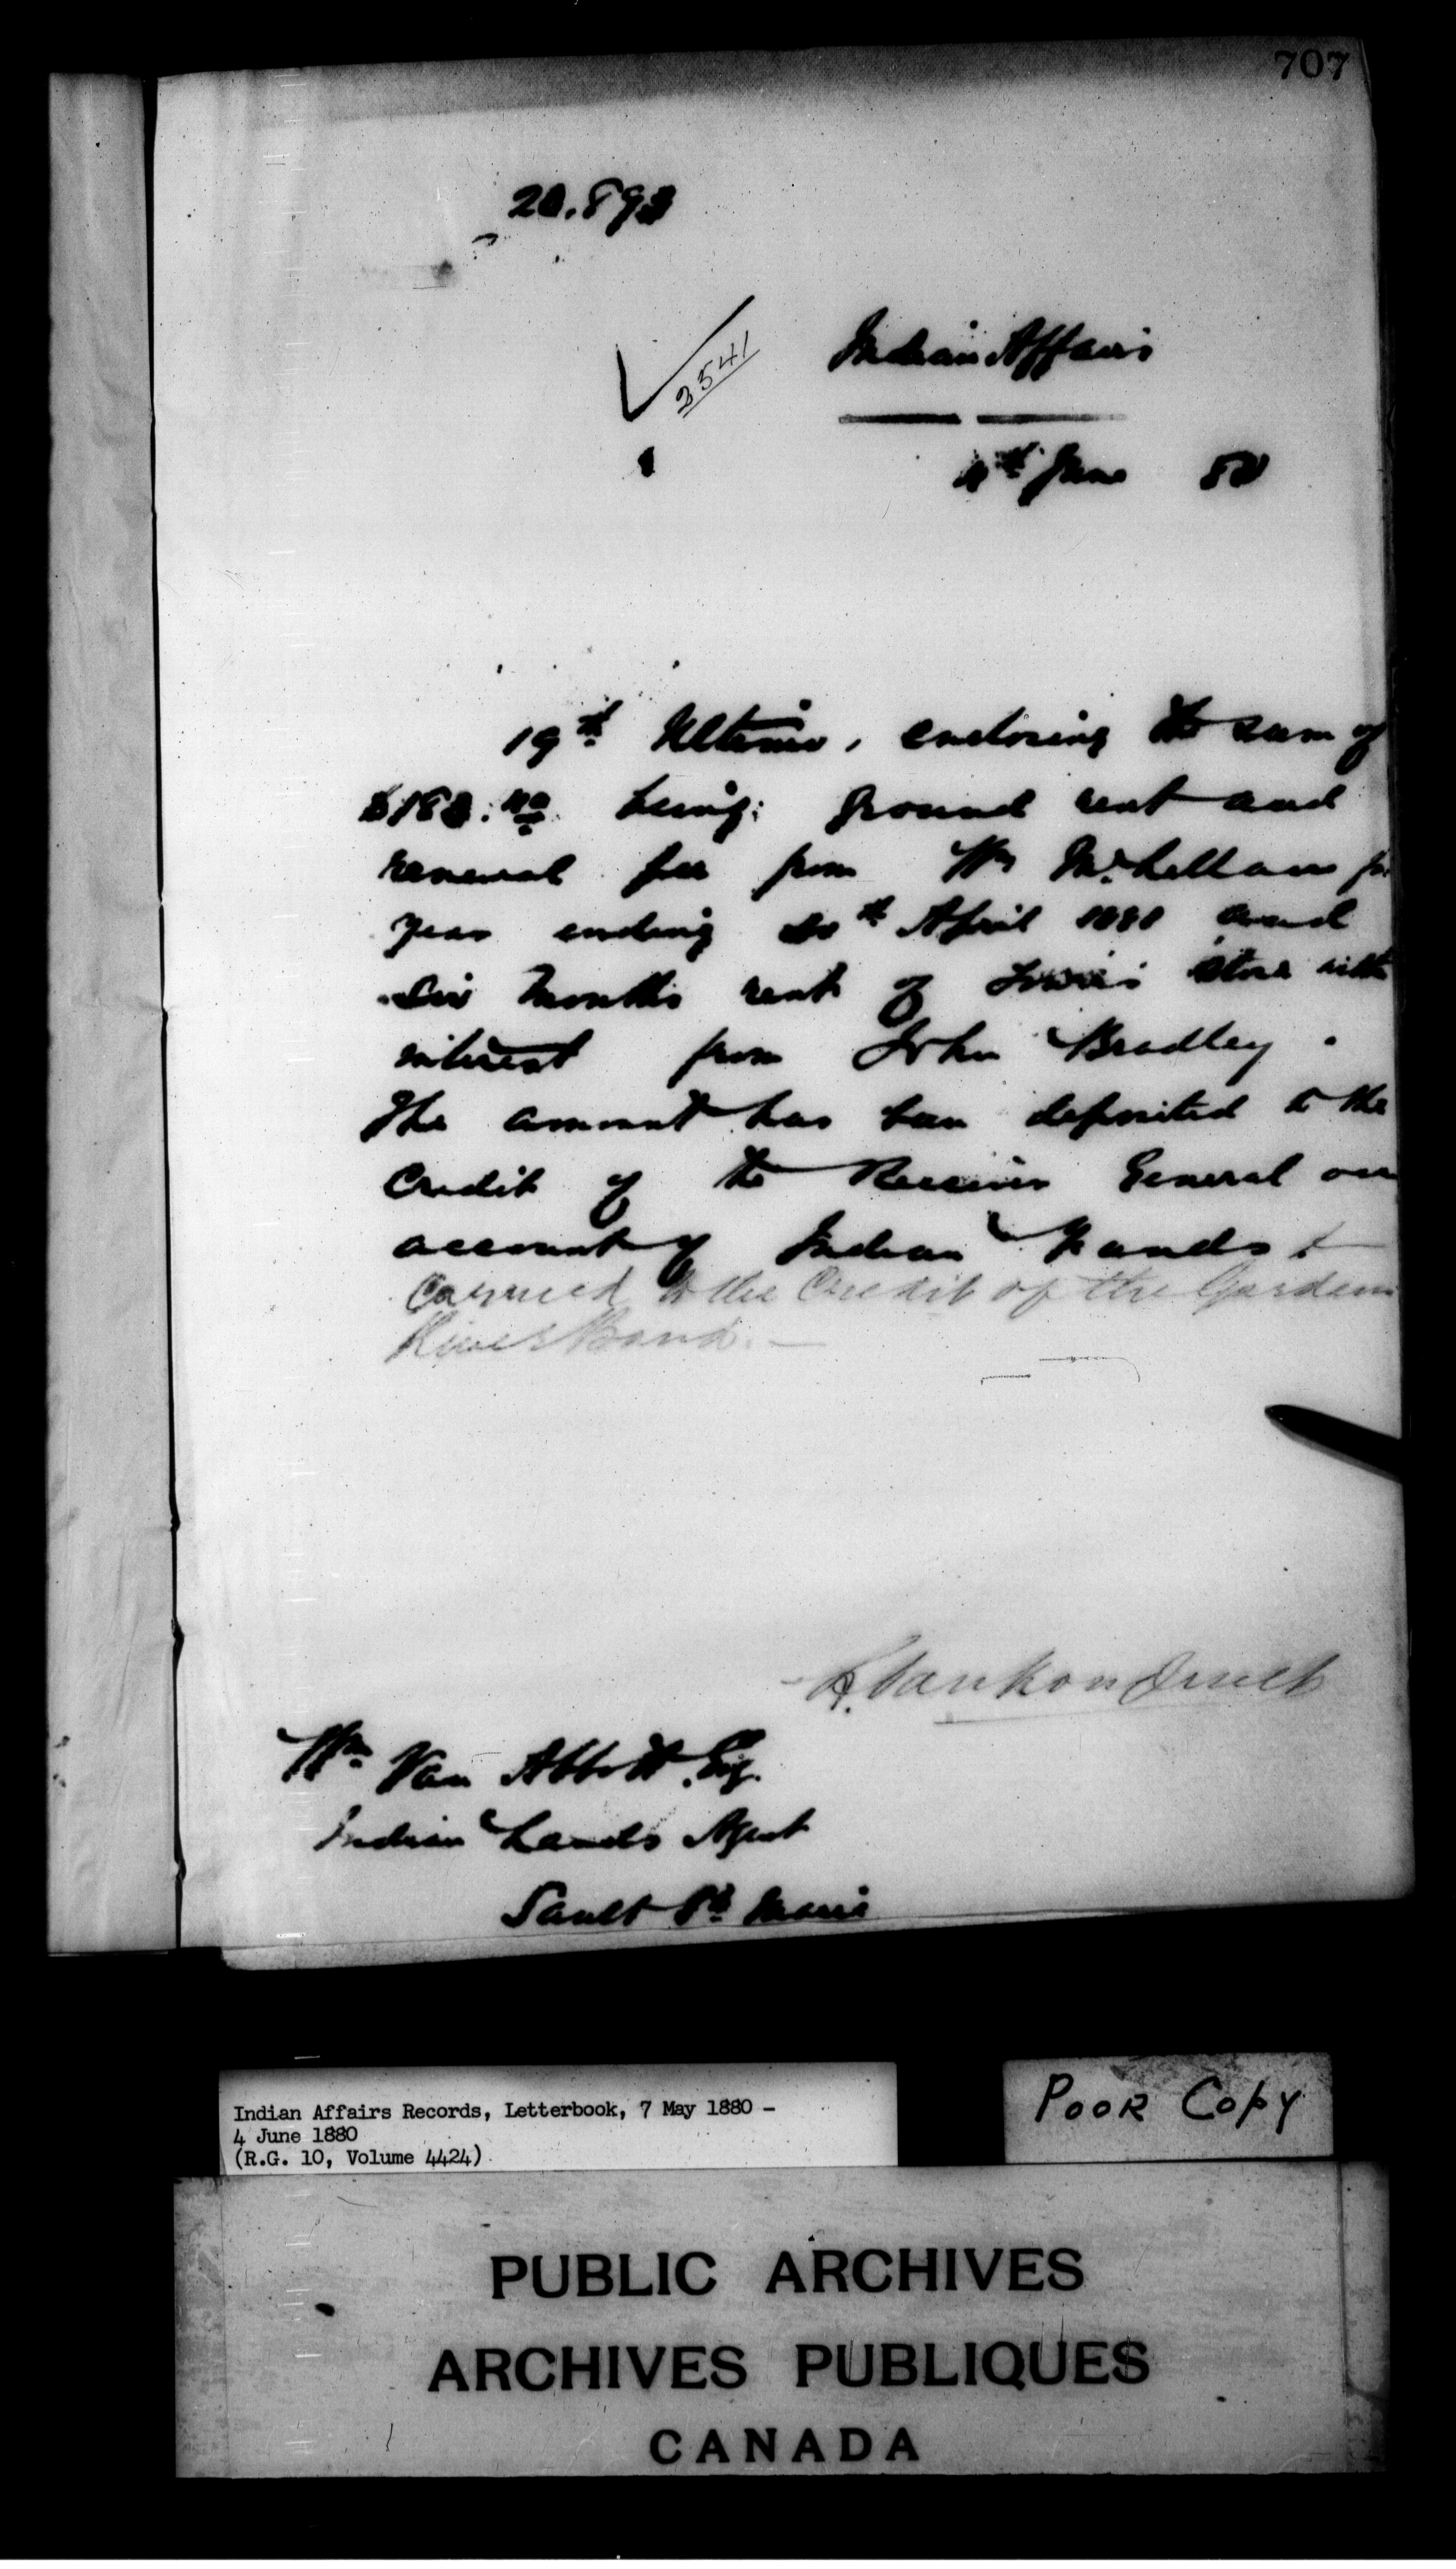 707
20.893
3541
Indian Affairs
4th June 80
19th Ultimo, enclosing the sum of
being: ground rent and
renewal fee from Wm McLellan for
year ending April and
Six Months rent of store with
interest from John Bradley.
The amount has been deposited to the
Credit of the Receiver General on
account of Indian Funds &
Carried to the Credit of the Garden
River Band. —
L. Vankoughnet
Wm Van Abbott Esq.
Indian Lands Agent
Sault Ste Marie
Indian Affairs Records, Letterbook, 7 May 1880 -
4 June 1880
(R.G. 10, Volume 4424)
POOR COPY
PUBLIC ARCHIVES
ARCHIVES PUBLIQUES
CANADA